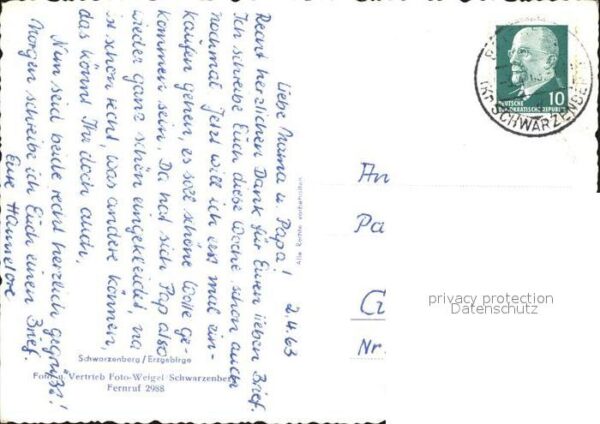 Liebe Mama u. Papa! 2.4.63
Recht herzlichen Dank für Euren lieben Brief.
Ich schreibe Euch diese Woche schon auch
nochmal. Jetzt will ich erst mal ein-
kaufen gehen, es soll schöne Wolle ge-
kommen sein. Da hat sich Pap also
wieder ganz schön eingekleidet, na
ist schon recht, was andere können,
das könnt Ihr doch auch.
Nun seid beide recht herzlich gegrüßt!
Morgen schreibe ich Euch einen Brief.
Eure Hannelore
Schwarzenberg / Erzgebirge
Foto u. Vertrieb Foto-Weigel Schwarzenberg
Fernruf 2988
DEUTSCHE
DEMOKRATISCHE REPUBLIK
10
(KR SCHWARZENBERG)
An
Pa
Nr.
privacy protection
Datenschutz